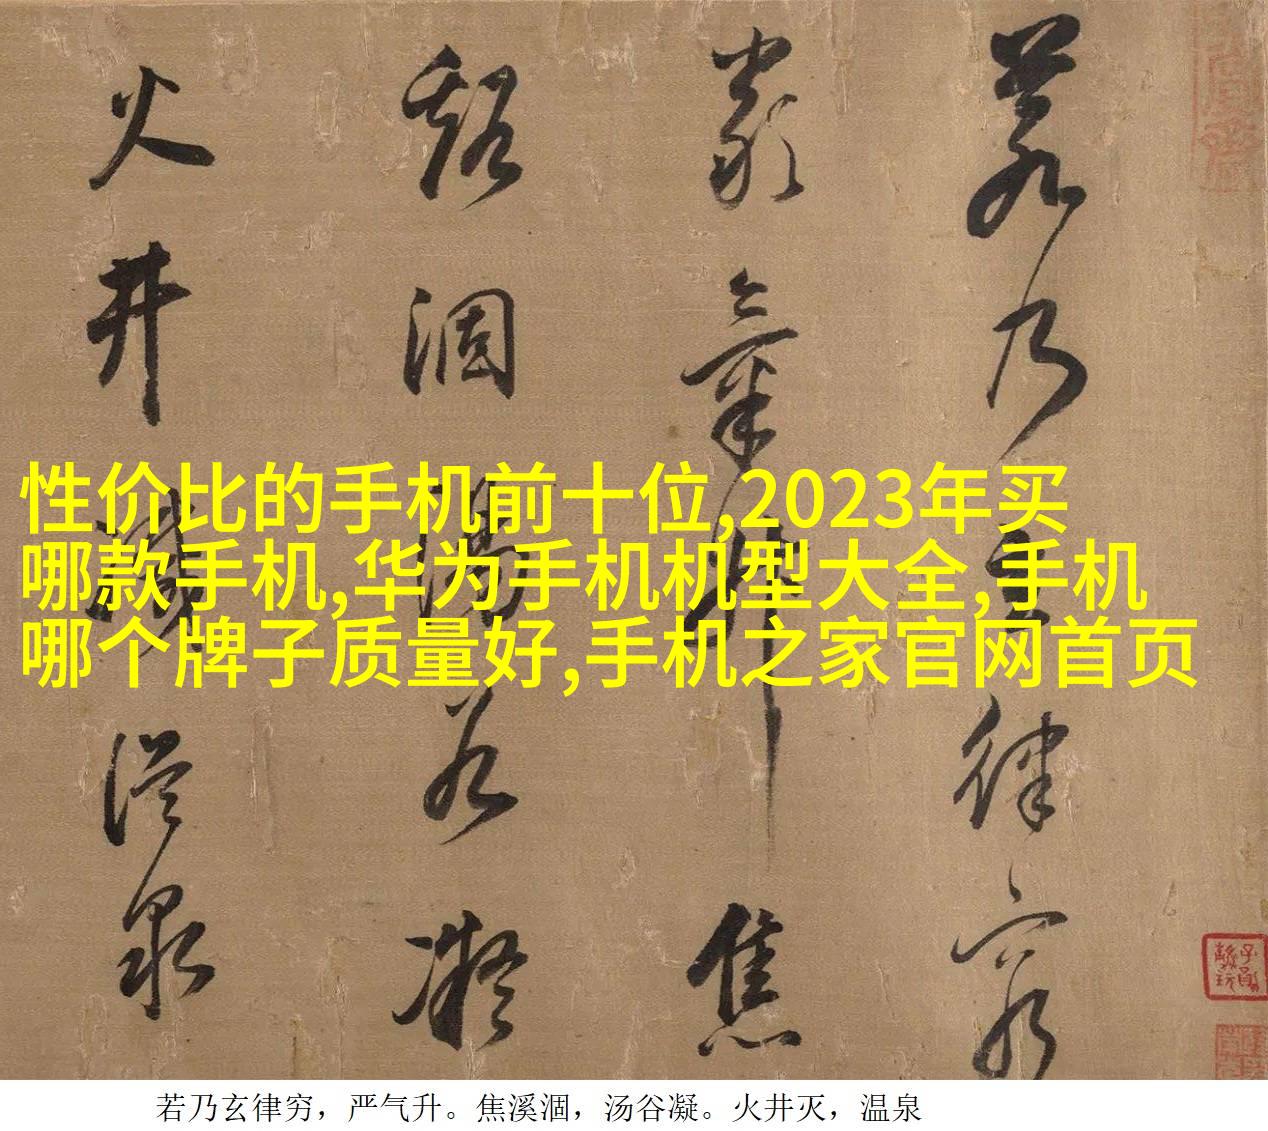 若乃玄律穷
严气升焦
谿涸汤谷凝
火井灭温泉
性价比的手机前十位,2023年买
哪款手机,华为手机机型大全,手机
哪个牌子质量好,手机之家官网首页
若乃玄律穷，严气升。焦溪涸，汤谷凝。火井灭，温泉